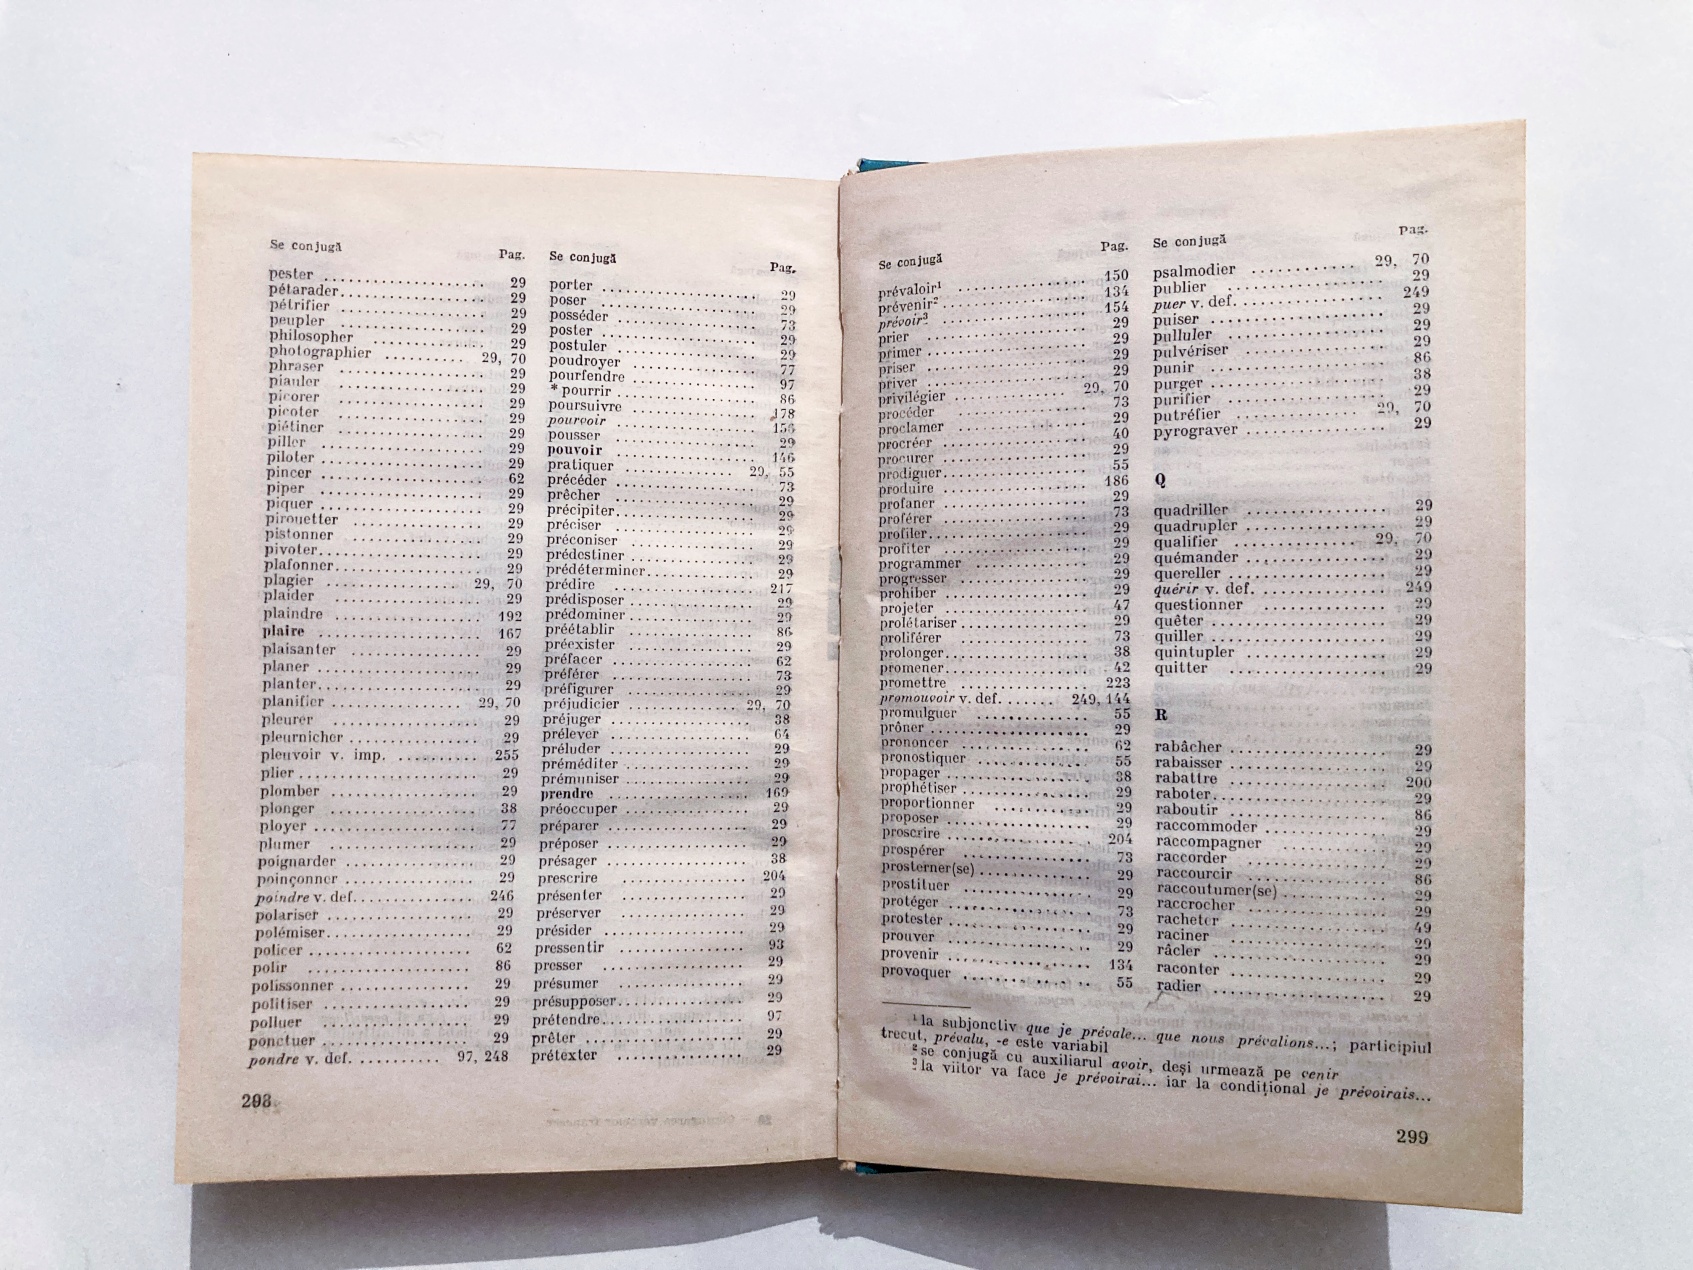 Se conjugă
Pag.
pester .................... 29
pétarader .................... 29
pétrifier .................... 29
peupler .................... 29
philosopher .................... 29
photographier .......... 29, 70
phraser .................... 29
piauler .................... 29
picorer .................... 29
picoter .................... 29
piétiner .................... 29
piller .................... 29
piloter .................... 29
pincer .................... 62
piper .................... 29
piquer .................... 29
pirouetter .................... 29
pistonner .................... 29
pivoter .................... 29
plafonner .................... 29
plagier .......... 29, 70
plaider .................... 29
plaindre .................... 192
plaire .................... 167
plaisanter .................... 29
planer .................... 29
planter .................... 29
planifier .......... 29, 70
pleurer .................... 29
pleurnicher .................... 29
pleuvoir v. imp. .......... 255
plier .................... 29
plomber .................... 29
plonger .................... 38
ployer .................... 77
plumer .................... 29
poignarder .................... 29
poinçonner .................... 29
poindre v. def. .......... 246
polariser .................... 29
polémiser .................... 29
policer .................... 62
polir .................... 86
polissonner .................... 29
politiser .................... 29
polluer .................... 29
ponctuer .................... 29
pondre v. def. .......... 97, 248
298
Se conjugă
Pag.
porter .................... 29
poser .................... 29
posséder .................... 73
poster .................... 29
postuler .................... 29
poudroyer .................... 77
pourfendre .................... 97
* pourrir .................... 86
poursuivre .................... 178
pourvoir .................... 154
pousser .................... 29
pouvoir .................... 146
pratiquer .......... 29, 55
précéder .................... 73
prêcher .................... 29
précipiter .................... 29
préciser .................... 29
préconiser .................... 29
prédestiner .................... 29
prédéterminer .................... 29
prédire .................... 217
prédisposer .................... 29
prédominer .................... 29
préétablir .................... 86
préexister .................... 29
préfacer .................... 62
préférer .................... 73
préfigurer .................... 29
préjudicier .......... 29, 70
préjuger .................... 38
prélever .................... 64
préluder .................... 29
préméditer .................... 29
prémuniser .................... 29
prendre .................... 169
préoccuper .................... 29
préparer .................... 29
préposer .................... 29
présager .................... 38
prescrire .................... 204
présenter .................... 29
préserver .................... 29
présider .................... 29
pressentir .................... 93
presser .................... 29
présumer .................... 29
présupposer .................... 29
prétendre .................... 97
prêter .................... 29
prétexter .................... 29
Se conjugă
Pag.
prévaloir¹ .................... 150
prévenir² .................... 134
prévoir³ .................... 154
prier .................... 29
primer .................... 29
priser .................... 29
priver .................... 29
privilégier .......... 29, 70
procéder .................... 73
proclamer .................... 29
procréer .................... 40
procurer .................... 29
prodiguer .................... 55
produire .................... 186
profaner .................... 29
proférer .................... 73
profiler .................... 29
profiter .................... 29
programmer .................... 29
progresser .................... 29
prohiber .................... 29
projeter .................... 47
prolétariser .................... 29
proliférer .................... 73
prolonger .................... 38
promener .................... 42
promettre .................... 223
promouvoir v. def. ....... 249, 144
promulguer .................... 55
prôner .................... 29
prononcer .................... 62
pronostiquer .................... 55
propager .................... 38
prophétiser .................... 29
proportionner .................... 29
proposer .................... 29
proscrire .................... 204
prospérer .................... 73
prosterner(se) .................... 29
prostituer .................... 29
protéger .................... 73
protester .................... 29
prouver .................... 29
provenir .................... 134
provoquer .................... 55
Se conjugă
Pag.
psalmodier .......... 29, 70
publier .................... 29
puer v. def. .................... 249
puiser .................... 29
pulluler .................... 29
pulvériser .................... 29
punir .................... 86
purger .................... 38
purifier .................... 29
putréfier .......... 29, 70
pyrograver .................... 29
Q
quadriller .................... 29
quadrupler .................... 29
qualifier .......... 29, 70
quémander .................... 29
quereller .................... 29
quérir v. def. .................... 249
questionner .................... 29
quêter .................... 29
quiller .................... 29
quintupler .................... 29
quitter .................... 29
R
rabâcher .................... 29
rabaisser .................... 29
rabattre .................... 200
raboter .................... 29
raboutir .................... 86
raccommoder .................... 29
raccompagner .................... 29
raccorder .................... 29
raccourcir .................... 86
raccoutumer(se) .................... 29
raccrocher .................... 29
racheter .................... 49
raciner .................... 29
râcler .................... 29
raconter .................... 29
radier .................... 29
¹ la subjonctiv que je prévale... que nous prévalions...; participiul
trecut, prévalu, -e este variabil
² se conjugă cu auxiliarul avoir, deși urmează pe venir
³ la viitor va face je prévoirai... iar la condițional je prévoirais...
299